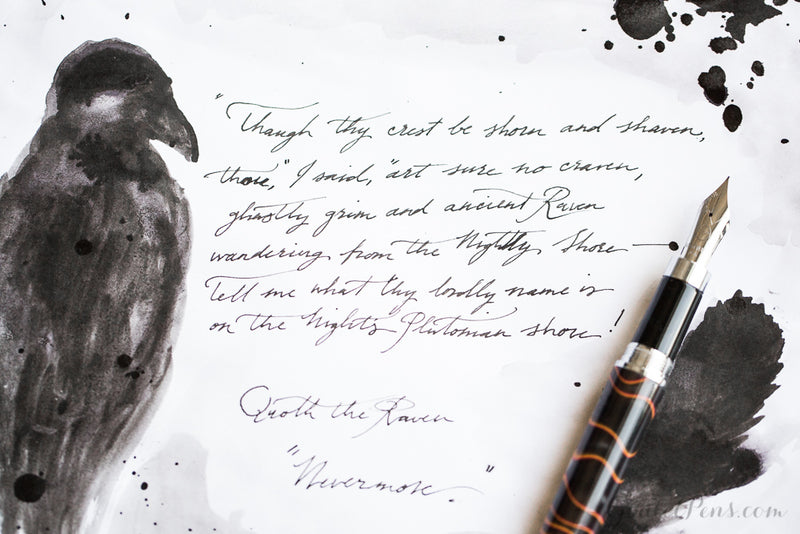 "Though thy crest be shorn and shaven,
thou," I said, "art sure no craven,
ghastly grim and ancient Raven
wandering from the Nightly Shore—
Tell me what thy lordly name is
on the Night's Plutonian shore!
Quoth the Raven
"Nevermore."
Pens.com